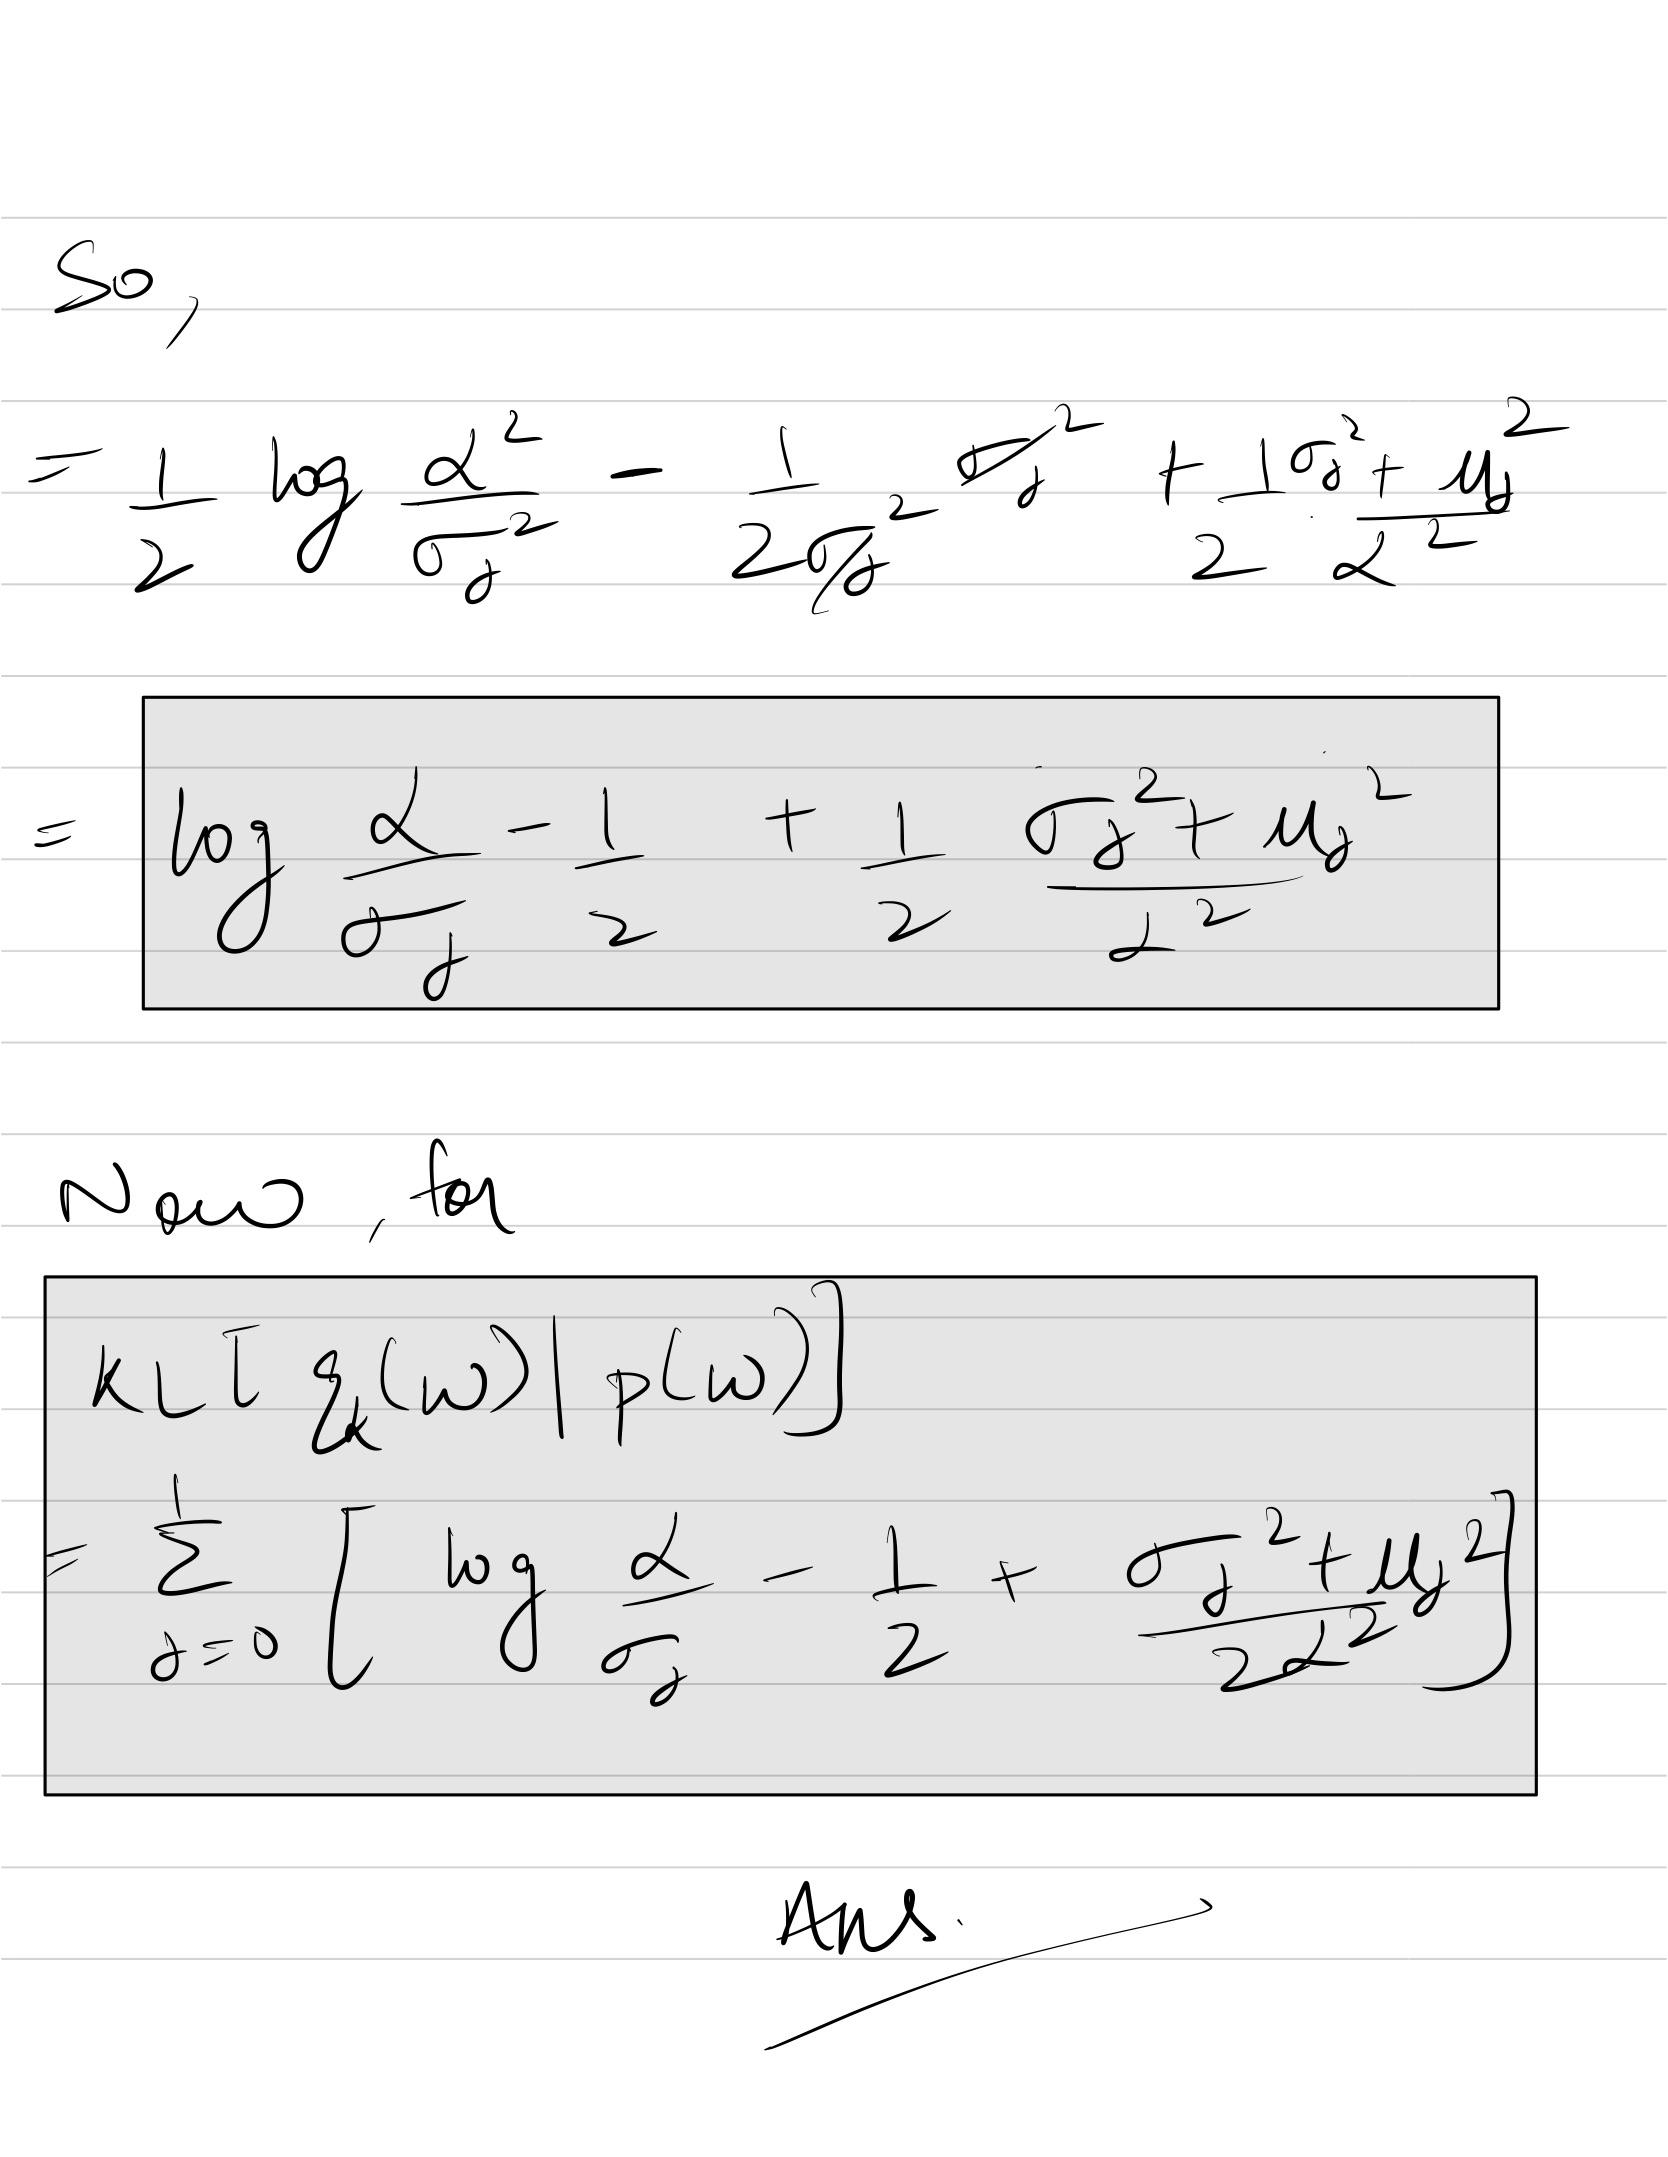 So,
= 1/2 log α²/σ_j² - 1/(2σ_j²) σ_j² + 1/2 (σ_j² + μ_j²)/α²
= log α/σ_j - 1/2 + 1/2 (σ_j² + μ_j²)/α²
Now, for
KL[q_α(w)|p(w)]
= Σ_{j=0}^{1} [log α/σ_j - 1/2 + (σ_j² + μ_j²)/(2α²)]
Ans.